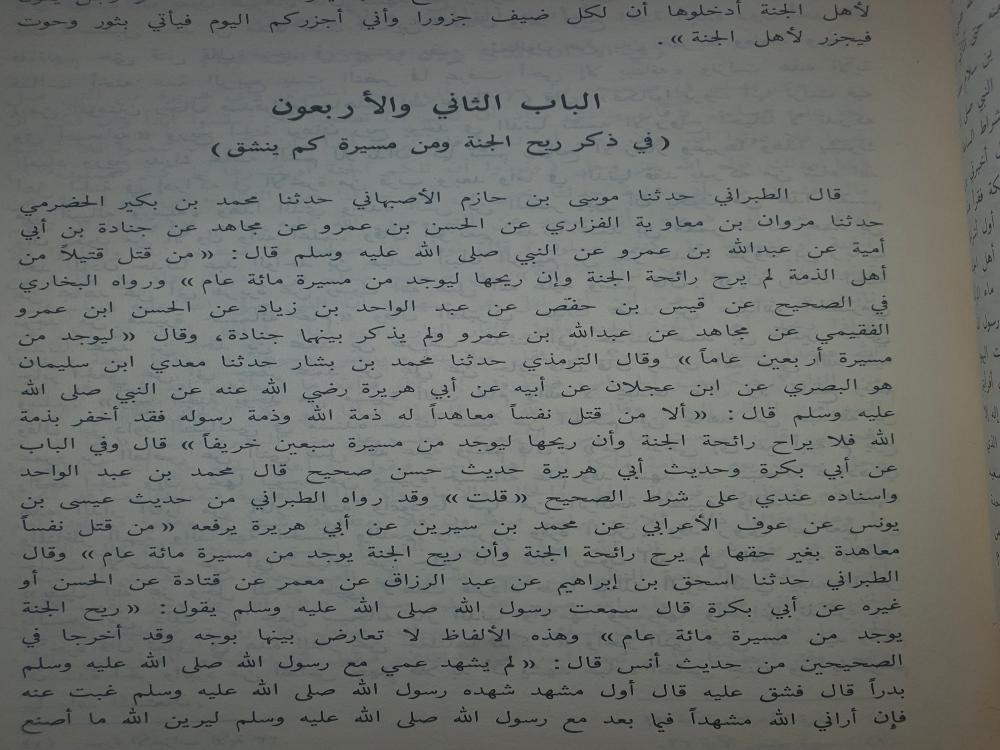 لأهل الجنة أدخلوها أن لكل ضيف جزورا وأني أجزركم اليوم فيأتي بثور وحوت
فيجزر لأهل الجنة » .
الباب الثاني والأربعون
( في ذكر ريح الجنة ومن مسيرة كم ينشق )
قال الطبراني حدثنا موسى بن حازم الأصبهاني حدثنا محمد بن بكير الحضرمي
حدثنا مروان بن معاوية الفزاري عن الحسن بن عمرو عن مجاهد عن جنادة بن أبي
أمية عن عبدالله بن عمرو عن النبي صلى الله عليه وسلم قال : « من قتل قتيلاً من
أهل الذمة لم يرح رائحة الجنة وإن ريحها ليوجد من مسيرة مائة عام » ورواه البخاري
في الصحيح عن قيس بن حفص عن عبد الواحد بن زياد عن الحسن ابن عمرو
الفقيمي عن مجاهد عن عبدالله بن عمرو ولم يذكر بينهما جنادة، وقال « ليوجد من
مسيرة أربعين عاماً » وقال الترمذي حدثنا محمد بن بشار حدثنا معدي ابن سليمان
هو البصري عن ابن عجلان عن أبيه عن أبي هريرة رضي الله عنه عن النبي صلى الله
عليه وسلم قال : « ألا من قتل نفساً معاهداً له ذمة الله وذمة رسوله فقد أخفر بذمة
الله فلا يراح رائحة الجنة وأن ريحها ليوجد من مسيرة سبعين خريفاً » قال وفي الباب
عن أبي بكرة وحديث أبي هريرة حديث حسن صحيح قال محمد بن عبد الواحد
واسناده عندي على شرط الصحيح « قلت » وقد رواه الطبراني من حديث عيسى بن
يونس عن عوف الأعرابي عن محمد بن سيرين عن أبي هريرة يرفعه « من قتل نفساً
معاهدة بغير حقها لم يرح رائحة الجنة وأن ريح الجنة يوجد من مسيرة مائة عام » وقال
الطبراني حدثنا اسحق بن إبراهيم عن عبد الرزاق عن معمر عن قتادة عن الحسن أو
غيره عن أبي بكرة قال سمعت رسول الله صلى الله عليه وسلم يقول : « ريح الجنة
يوجد من مسيرة مائة عام » وهذه الألفاظ لا تعارض بينها بوجه وقد أخرجا في
الصحيحين من حديث أنس قال : « لم يشهد عمي مع رسول الله صلى الله عليه وسلم
بدراً قال فشق عليه قال أول مشهد شهده رسول الله صلى الله عليه وسلم غبت عنه
فإن أراني الله مشهداً فيما بعد مع رسول الله صلى الله عليه وسلم ليرين الله ما أصنع